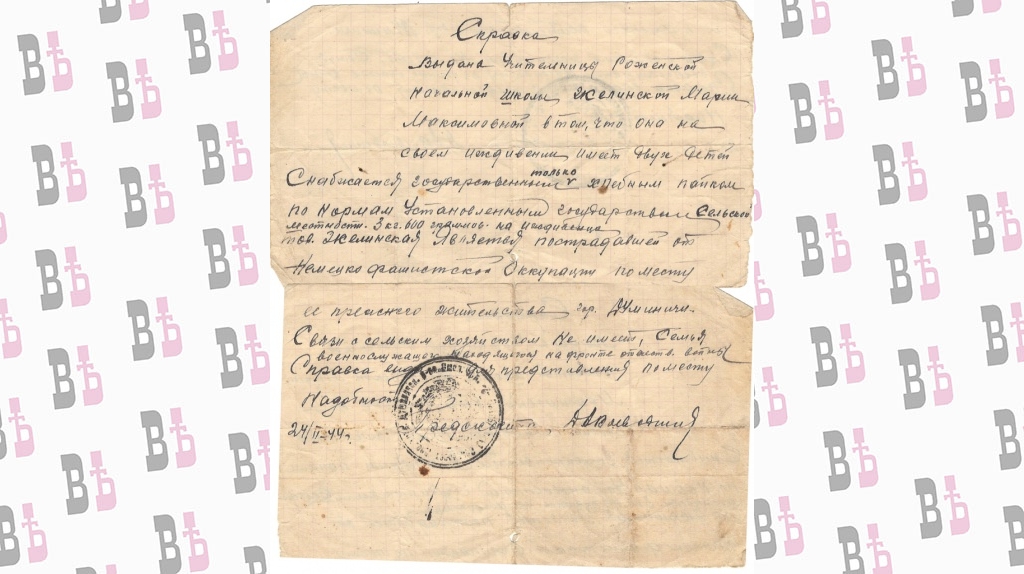 Справка
Выдана Учительнице Роженской
Начальной школы Желинской Марии
Максимовной в том, что она на
своем иждивении имеет двух детей
Снабжается государственным только хлебным пайком
по нормам установленным государством Сельской
местности. 3 кг. 600 граммов. на иждивенца
тов. Желинская Является пострадавшей от
Немецко фашистской Оккупации по месту
ее прежнего жительства гор. Думиничи.
Связи с сельским хозяйством Не имеет, Семья
военнослужащего находящегося на фронте отечеств. войны
Справка для представления по месту
Надобности
24/II-44г.
ВѢ